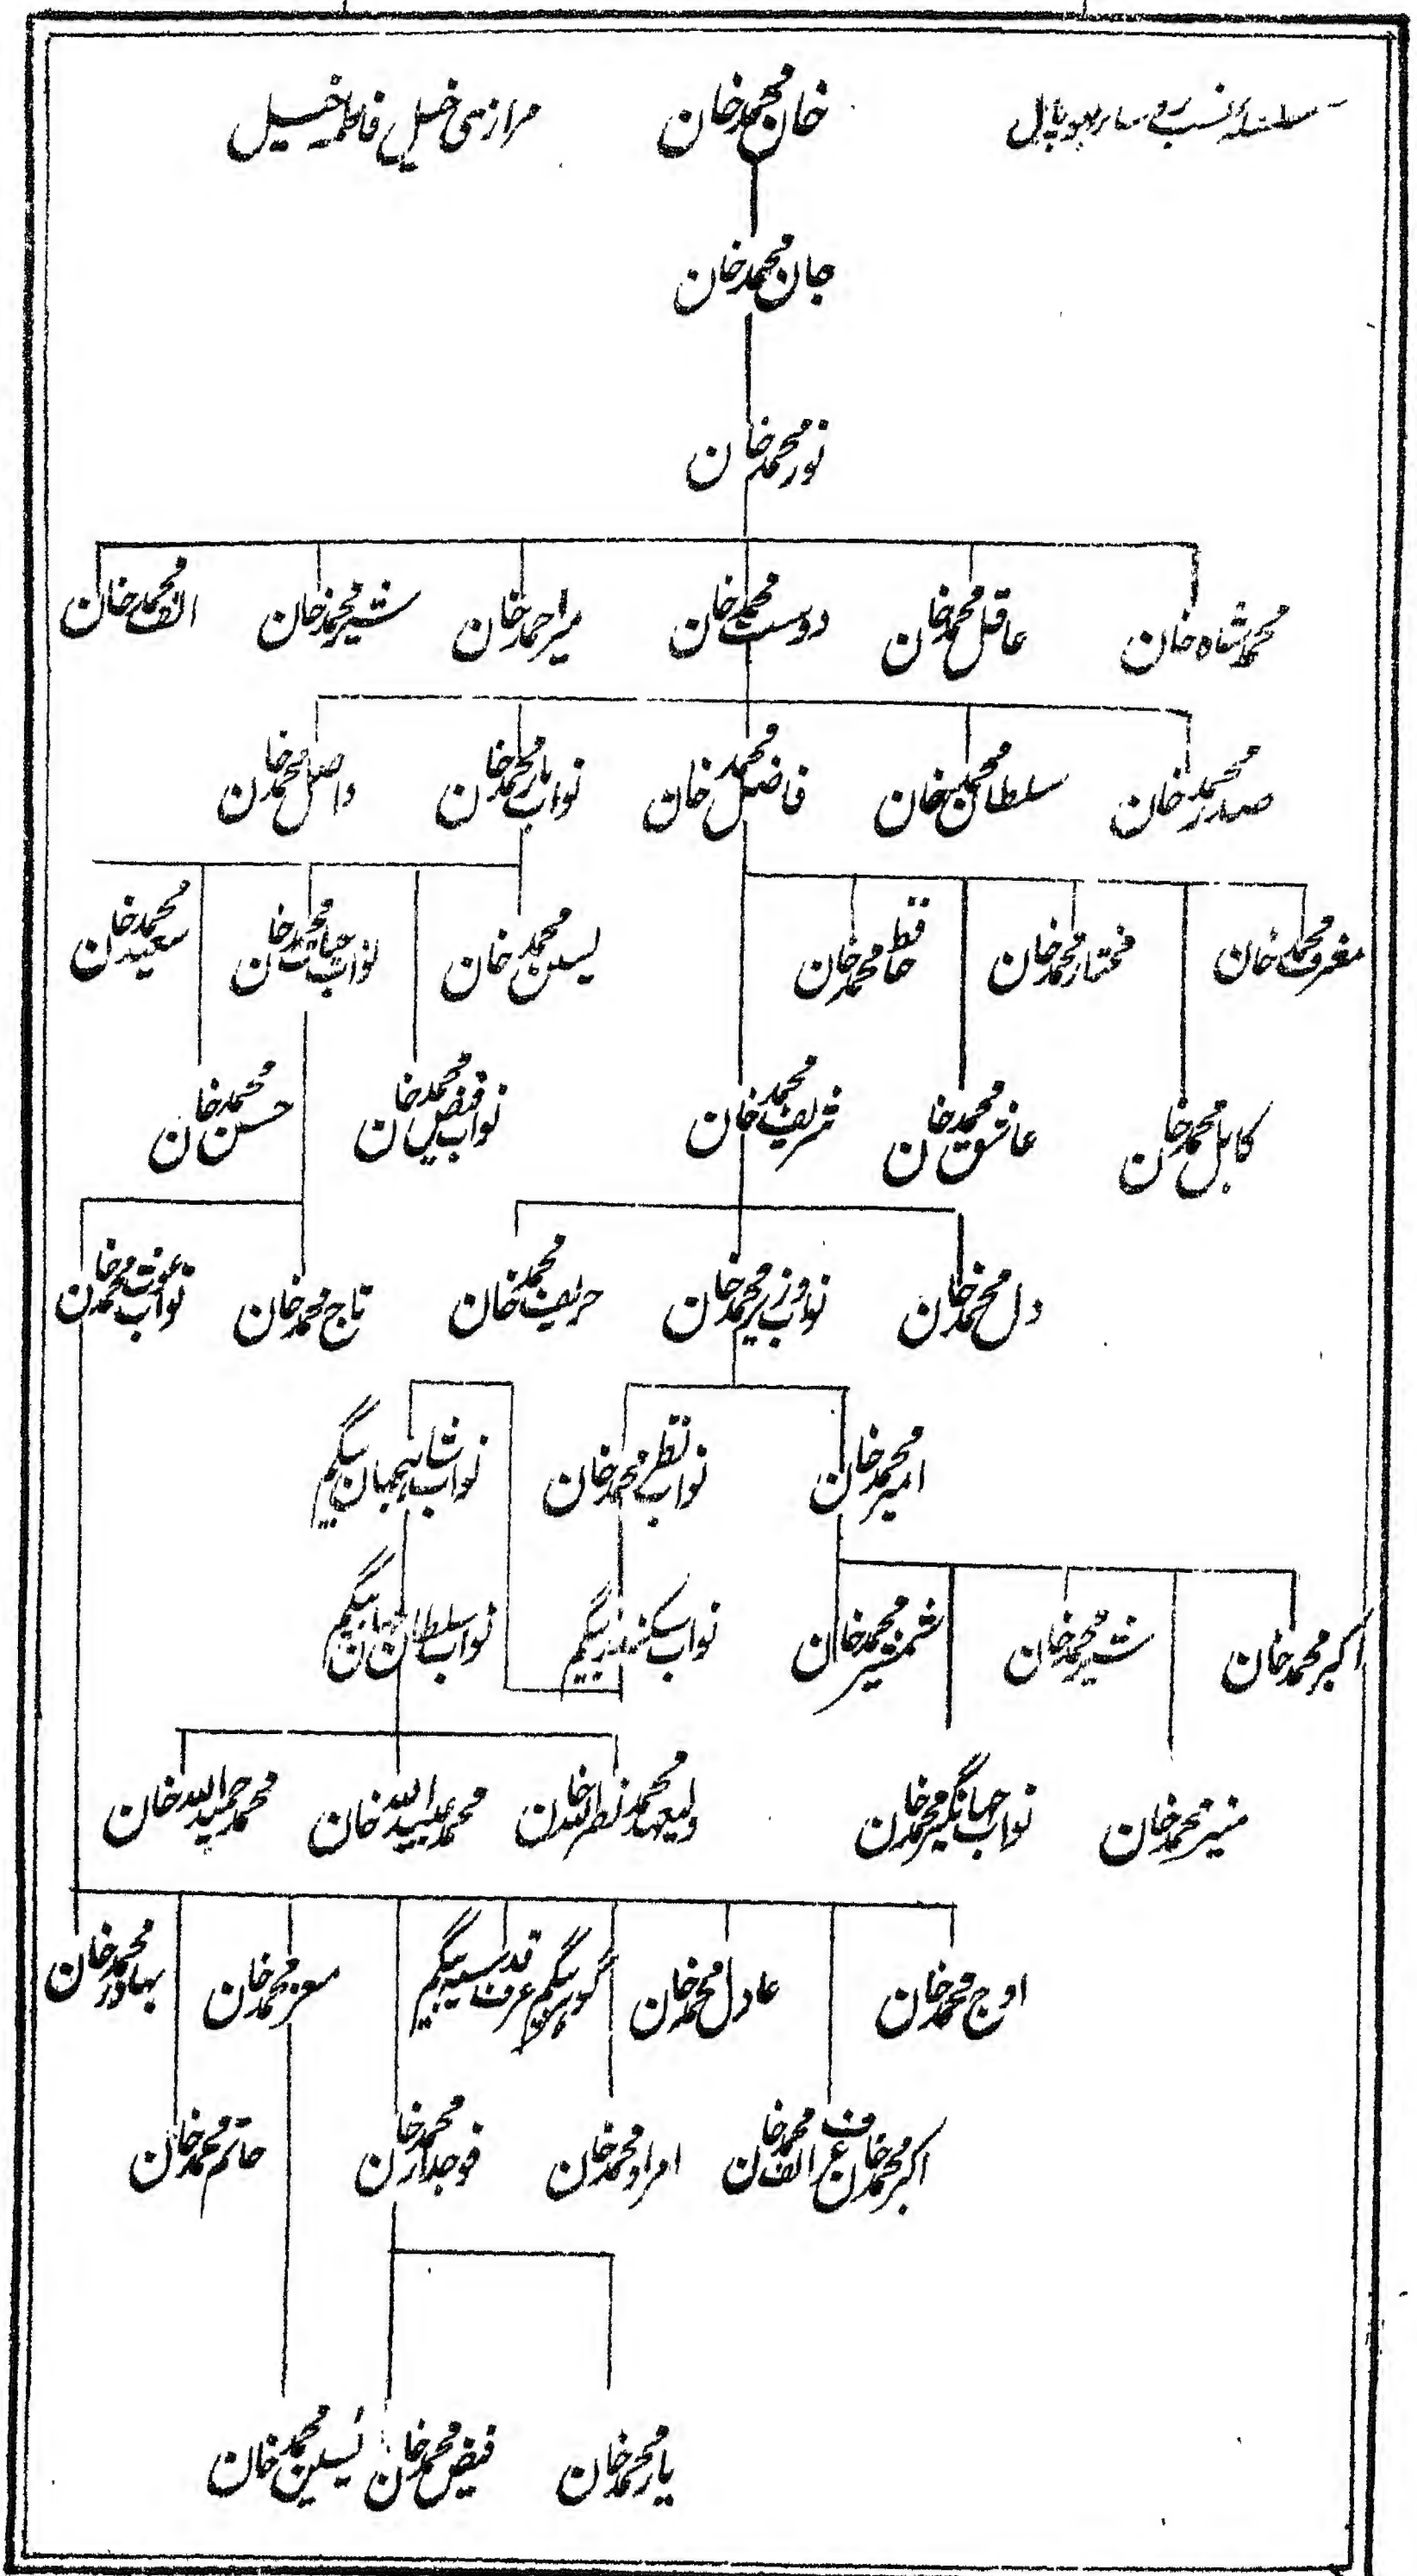 سلسلہ نسب رؤسا بھوپال
خان محمد خان
مرازی خیل فاطمہ خیل
جان محمد خان
نور محمد خان
محمد شاہ خان
عاقل محمد خان
دوست محمد خان
میر احمد خان
شیر محمد خان
الف محمد خان
صدر محمد خان
سلطان محمد خان
فاضل محمد خان
نواب یار محمد خان
واصل محمد خان
معرف محمد خان
مختار محمد خان
حافظ محمد خان
یسین محمد خان
نواب حیات محمد خان
سعید محمد خان
کابل محمد خان
عاشق محمد خان
شریف محمد خان
نواب فیض محمد خان
حسن محمد خان
دل محمد خان
نواب وزیر محمد خان
حریف محمد خان
تاج محمد خان
نواب غوث محمد خان
امیر محمد خان
نواب نظر محمد خان
نواب شاہجہان بیگم
اکبر محمد خان
شیر محمد خان
شمشیر محمد خان
نواب سکندر بیگم
نواب سلطان جہان بیگم
منیر محمد خان
نواب جہانگیر محمد خان
ولیعہد محمد نصر اللہ خان
محمد عبید اللہ خان
محمد حمید اللہ خان
اوج محمد خان
عادل محمد خان
گوہر بیگم عرف قدسیہ بیگم
معز محمد خان
بہادر محمد خان
اکبر محمد خان عرف الف محمد خان
امراو محمد خان
فوجدار محمد خان
حاتم محمد خان
یار محمد خان
فیض محمد خان
یسین محمد خان